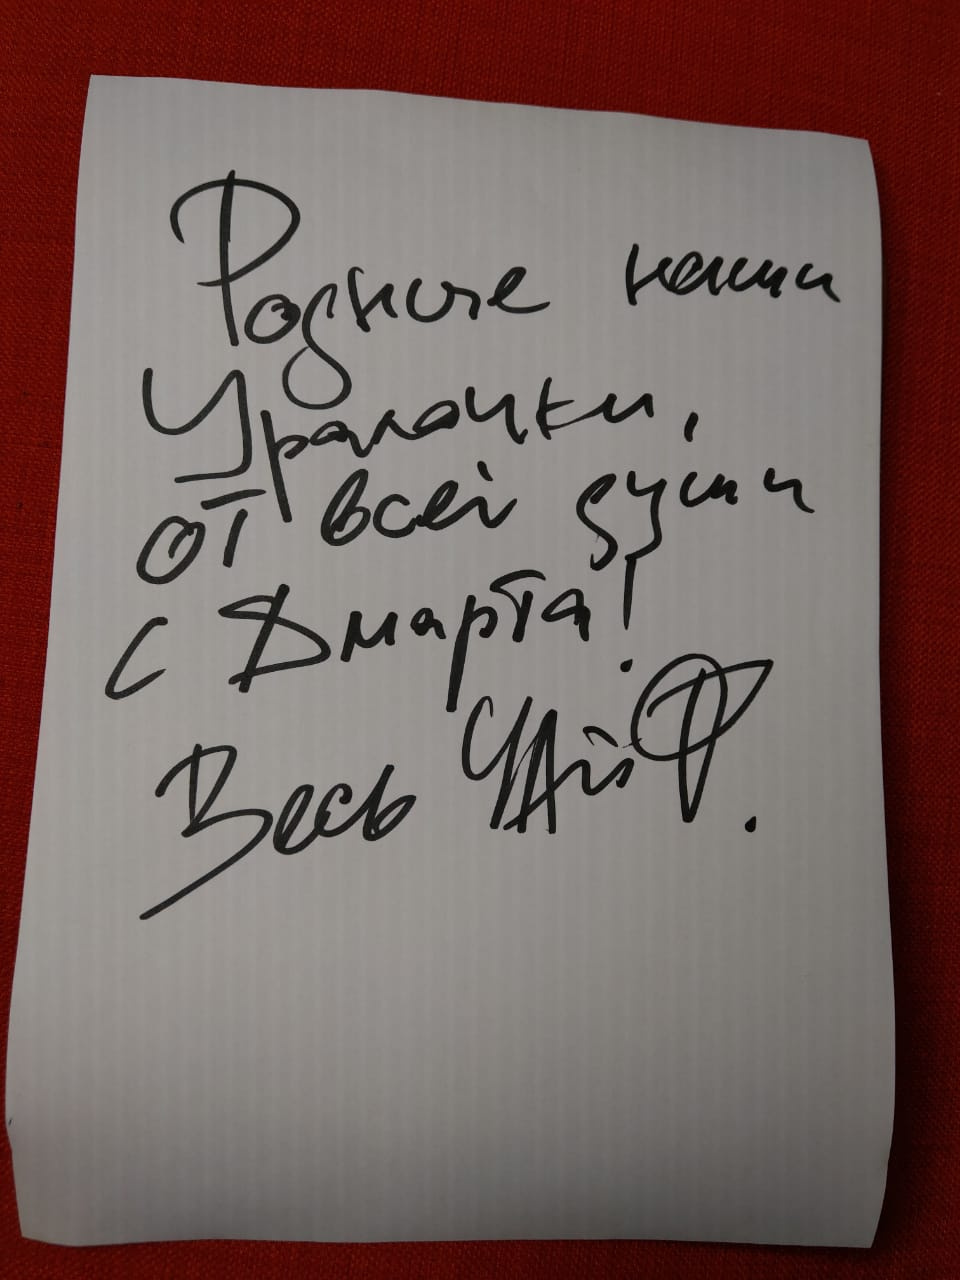 Родные наши
Уралочки,
от всей души
с 8 марта!
Весь Чайф.